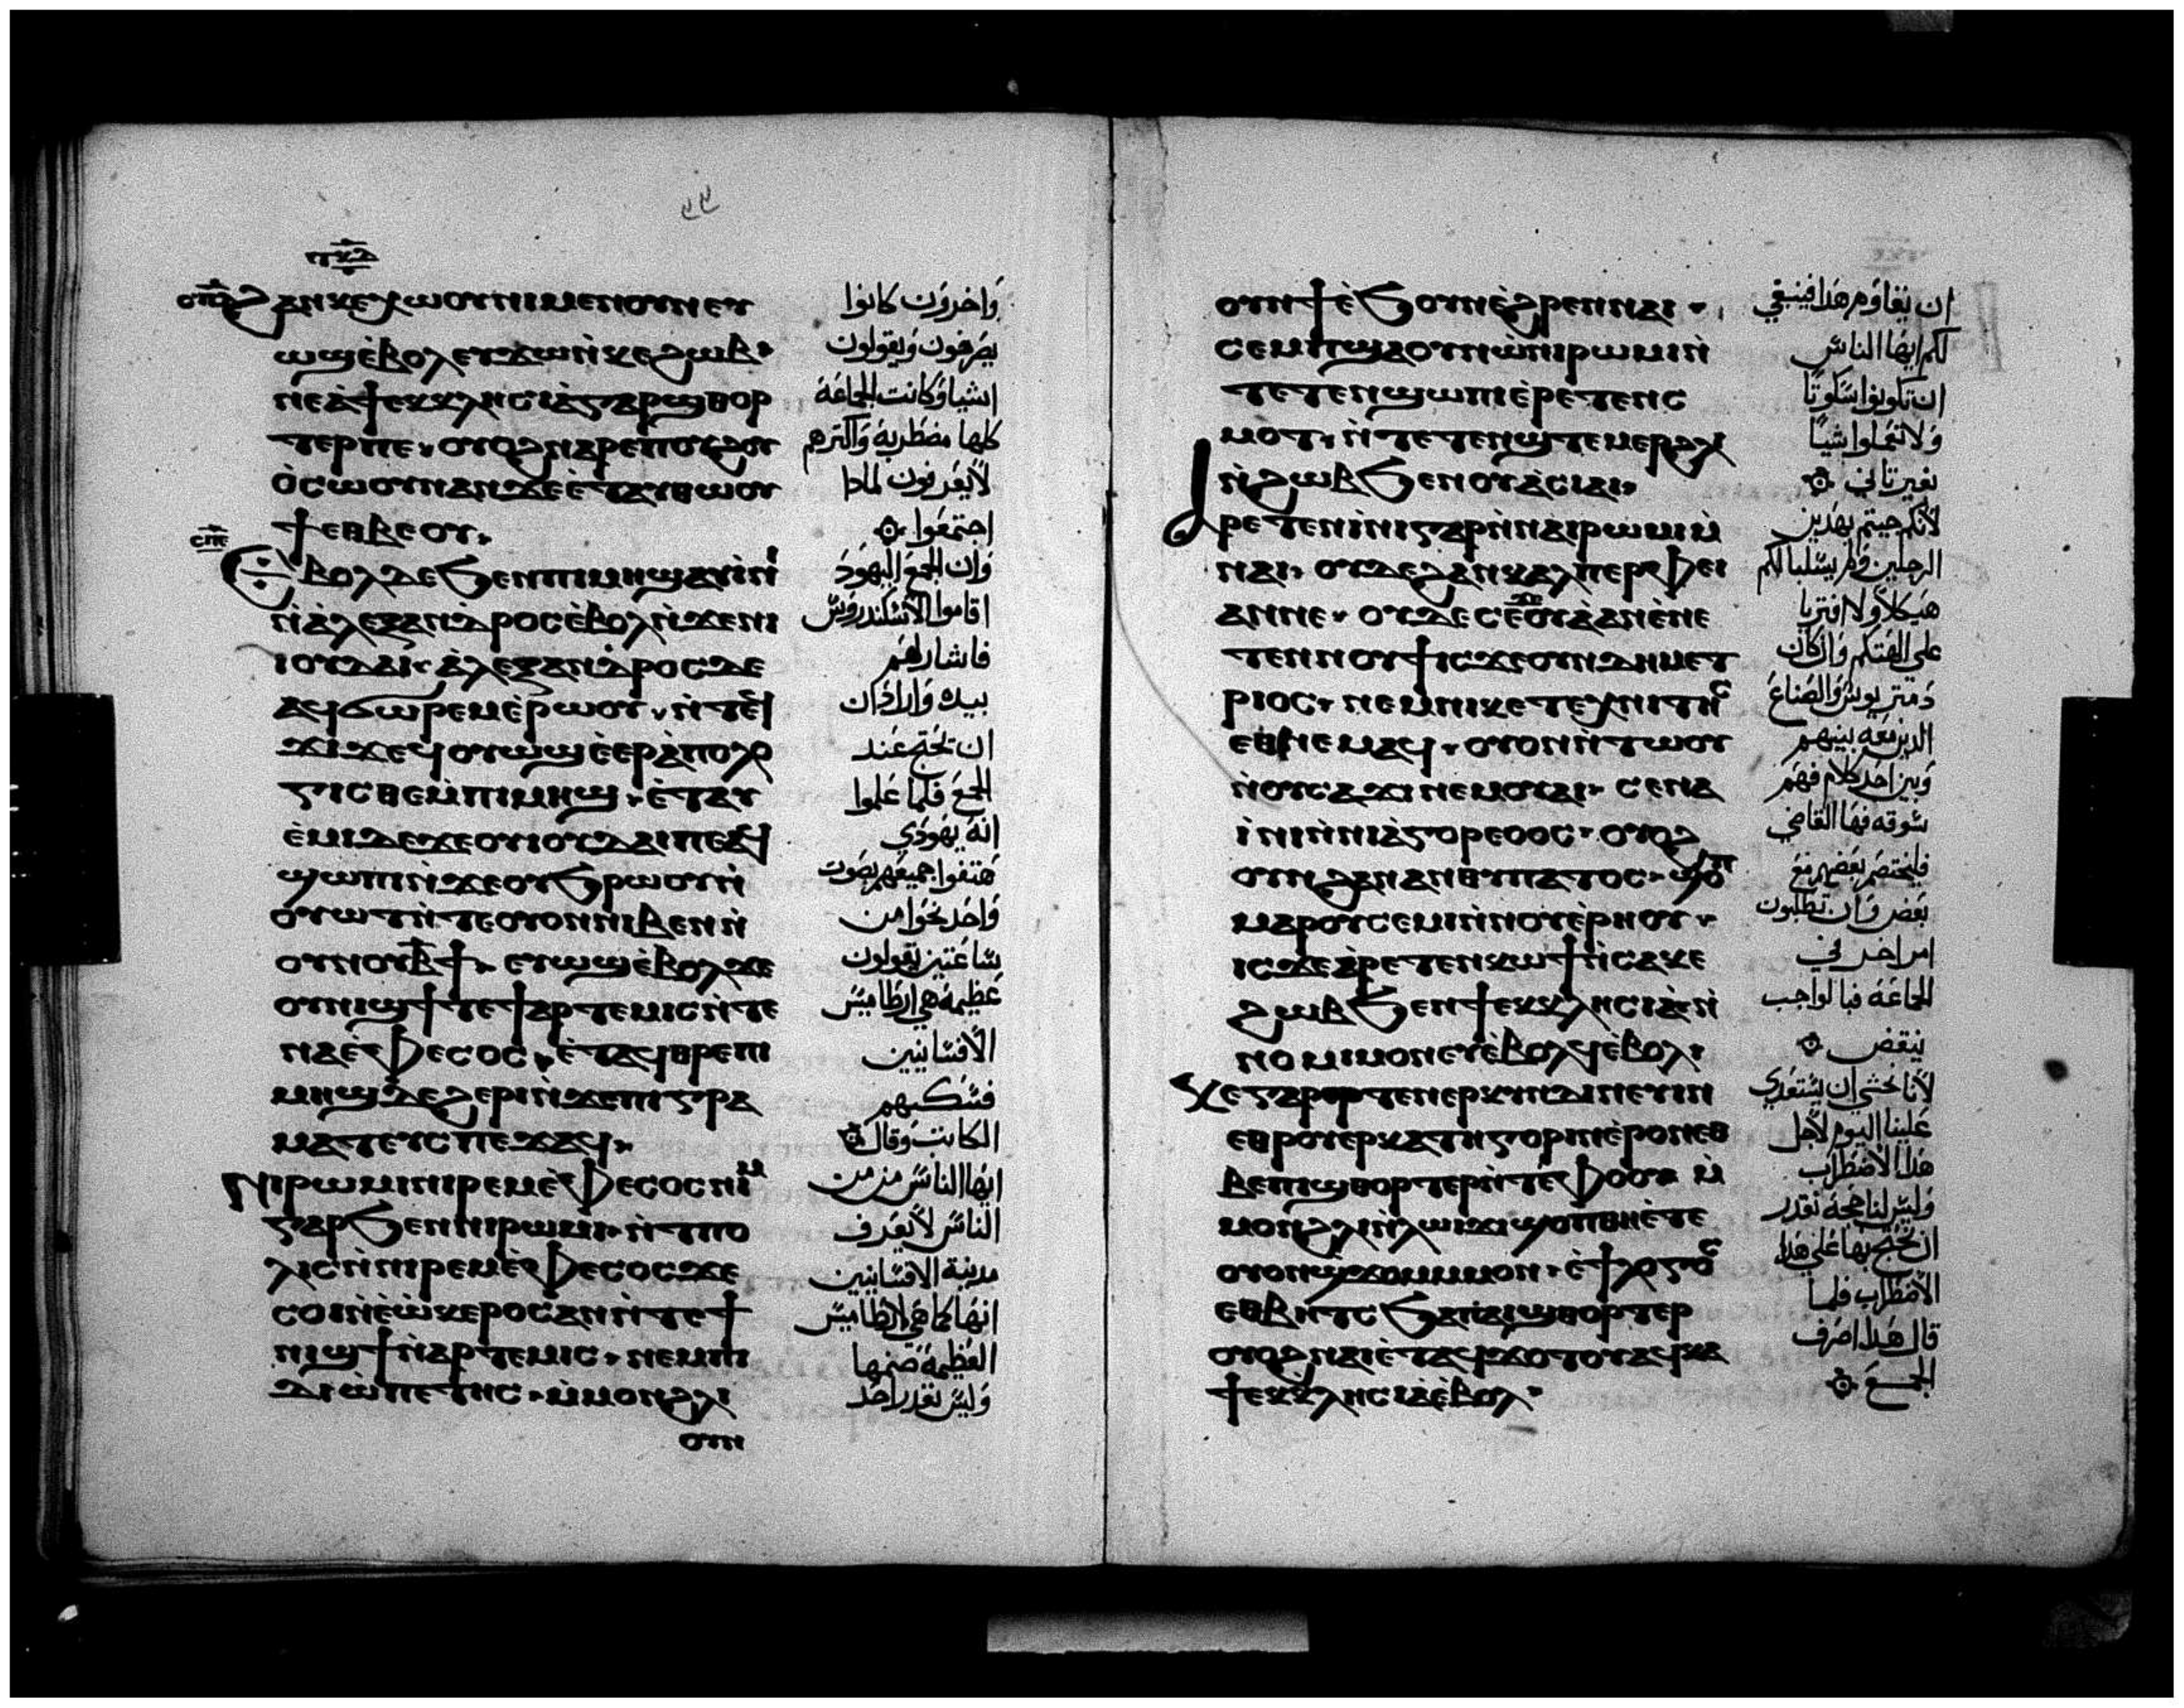 ϩⲁⲛⲕⲉⲭⲱⲟⲩⲛⲓ ⲙⲉⲛ ⲟⲩⲛ ⲉⲩ
ⲱϣ ⲉ̀ⲃⲟⲗ ⲉⲩϫⲱ ⲛ̀ⲕⲉϩⲱⲃ
ⲛⲉ ⲁ̀ ϯⲉⲕⲕⲗⲏⲥⲓⲁ̀ ⲅⲁⲣ ϣⲑⲟⲣ
ⲧⲉⲣ ⲡⲉ ⲟⲩⲟϩ ⲛⲁⲣⲉ ⲡⲟⲩϩⲟⲩ
ⲟ̀ ⲥⲱⲟⲩⲛ ⲁⲛ ϫⲉ ⲉ̀ⲧⲁⲩⲑⲱⲟⲩ
ϯ ⲉⲑⲃⲉ ⲟⲩ
Ⲉⲃⲟⲗ ⲇⲉ ϧⲉⲛ ⲡⲓⲙⲏϣ ⲁⲩⲓ̀ⲛⲓ
ⲛ̀ⲁ̀ⲗⲉⲝⲁⲛⲇⲣⲟⲥ ⲉ̀ⲃⲟⲗ ⲛ̀ϫⲉ ⲛⲓ
ⲓⲟⲩⲇⲁⲓ ⲁ̀ⲗⲉⲝⲁⲛⲇⲣⲟⲥ ⲇⲉ
ⲁϥϭⲱⲣⲉⲙ ⲉ̀ⲣⲱⲟⲩ ⲛ̀ⲧⲉϥ
ϫⲓϫ ⲉϥⲟⲩⲱϣ ⲉ̀ⲉⲣⲁ̀ⲡⲟⲗⲟ
ⲅⲓⲥⲑⲉ ⲙ̀ⲡⲓⲙⲏϣ ⲉ̀ⲧⲁⲩ
ⲉ̀ⲙⲓ ⲇⲉ ϫⲉ ⲟⲩⲓⲟⲩⲇⲁⲓ ⲡⲉ ⲁϥ
ϣⲱⲡⲓ ⲛ̀ϫⲉ ⲟⲩϧⲣⲱⲟⲩ ⲛ̀
ⲟⲩⲱⲧ ⲛ̀ⲧⲉ ⲟⲩⲟⲛ ⲛⲓⲃⲉⲛ ⲛ̀
ⲟⲩⲛⲟⲩ ⲃ̅ϯ ⲉⲩⲱϣ ⲉ̀ⲃⲟⲗ ϫⲉ
ⲟⲩⲛⲓϣϯ ⲧⲉ ϯⲁⲣⲧⲉⲙⲓⲥ ⲛ̀ⲧⲉ
ⲛⲁ ⲉ̀ⲫⲉⲥⲟⲥ ⲉ̀ⲧⲁϥⲑⲣⲉ ⲡⲓ
ⲙⲏϣ ⲇⲉ ϩⲉⲣⲓ ⲛ̀ϫⲉ ⲡⲓⲅⲣⲁ
ⲙⲁⲧⲉⲩⲥ ⲡⲉϫⲁϥ
Ⲛⲓⲣⲱⲙⲓ ⲛⲓⲣⲉⲙⲉ̀ⲫⲉⲥⲟⲥ ⲛⲓⲙ
ⲅⲁⲣ ϧⲉⲛ ⲛⲓⲣⲱⲙⲓ ⲛ̀ⲧⲡⲟ
ⲗⲓⲥ ⲛ̀ⲛⲓⲣⲉⲙⲉ̀ⲫⲉⲥⲟⲥ ϫⲉ
ⲥⲟⲓ ⲛ̀ⲉ̀ⲱ̀ⲕⲉⲣⲟⲥ ⲁⲛ ⲛ̀ⲧⲉ ϯ
ⲛⲓϣϯ ⲛ̀ⲁⲣⲧⲉⲙⲓⲥ ⲛⲉⲙ ⲡⲓ
ⲇⲓⲱ̀ⲡⲉⲧⲏⲥ ⲙ̀ⲙⲟⲛ ϩⲗⲓ
ⲟⲩⲛ
واخرون كانوا
يصرخون ويقولون
اشيا وكانت الجماعة
كلها مضطربة واكثرهم
لا يعرفون لماذا
اجتمعوا
وان الجمع اليهود
اقاموا الاسكندروس
فاشار لهم
بيده واراد ان
ان يحتج عند
الجمع فلما علموا
انه يهودي
هتفوا جميعهم بصوت
واحد نحوا من
ساعتين يقولون
عظيمة هي ارطاميس
الافسانيين
فسكتهم
الكاتب وقال
ايها الناس من من
الناس لا يعرف
مدينة الافسانيين
انها كما هي لارطاميس
العظيمة صنمها
وليس يقدر احد
ⲟⲩⲛ ϯ ⲉ̀ϧⲟⲩⲛ ⲉ̀ϩⲣⲉⲛ ⲛⲁⲓ
ⲥⲉⲙⲡϣⲁ ⲟⲩⲛ ⲱ̀ ⲛⲓⲣⲱⲙⲓ ⲛ̀
ⲧⲉⲧⲉⲛϣⲱⲡⲓ ⲉ̀ⲣⲉⲧⲉⲛⲥ
ⲙⲟⲧ ⲛ̀ⲧⲉⲧⲉⲛϣⲧⲉⲙⲉⲣ ϩⲗⲓ
ⲛ̀ϩⲱⲃ ϧⲉⲛ ⲟⲩⲁ̀ⲥⲓⲁⲓ
Ⲁⲣⲉⲧⲉⲛⲓ̀ⲛⲓ ⲅⲁⲣ ⲛ̀ⲛⲁⲓⲣⲱⲙⲓ ⲙ̀
ⲛⲁⲓ ⲟⲩⲇⲉ ϩⲁⲛⲕⲁⲗⲡⲉⲣⲫⲉⲓ
ⲁⲛ ⲛⲉ ⲟⲩⲇⲉ ⲥⲉϫⲉⲟⲩⲁ̀ ⲁⲛ ⲉ̀ⲛⲉ
ⲧⲉⲛⲛⲟⲩϯ ⲓⲥϫⲉ ⲟⲩⲛ ⲇⲏⲙⲉⲧ
ⲣⲓⲟⲥ ⲛⲉⲙ ⲛⲓⲕⲉⲧⲉⲭⲛⲓⲧⲏⲥ
ⲉⲑⲛⲉⲙⲁϥ ⲟⲩⲟⲛ ⲛ̀ⲧⲱⲟⲩ
ⲛ̀ⲟⲩⲥⲁϫⲓ ⲛⲉⲙ ⲟⲩⲁⲓ ⲥⲉⲛⲁ
ⲓ̀ⲛⲓ ⲛ̀ⲛⲓⲁ̀ⲅⲟⲣⲉⲟⲥ ⲟⲩⲟϩ
ⲟⲩⲛ ϩⲁⲛⲁⲛⲑⲩⲡⲁⲧⲟⲥ ϣⲟⲡ
ⲙⲁⲣⲟⲩⲥⲉⲙⲓ ⲛ̀ⲛⲟⲩⲉ̀ⲣⲏⲟⲩ
ⲓⲥϫⲉ ⲁ̀ⲣⲉⲧⲉⲛⲕⲱϯ ⲛ̀ⲥⲁ ⲕⲉ
ϩⲱⲃ ϧⲉⲛ ϯⲉⲕⲕⲗⲏⲥⲓⲁ̀ ⲛ̀
ⲛⲟⲙⲓⲙⲟⲛ ⲉⲩⲉ̀ⲃⲟⲗϥ ⲉ̀ⲃⲟⲗ
Ⲕⲉ ⲅⲁⲣ ⲧⲉⲛⲉⲣⲕⲩⲛⲇⲓⲛⲉⲩⲓⲛ
ⲉⲑⲣⲟⲩⲉⲣⲕⲁⲧⲏⲅⲟⲣⲓⲛ ⲉ̀ⲣⲟⲛ ⲉⲑ
ⲃⲉ ⲡⲓϣⲑⲟⲣⲧⲉⲣ ⲛ̀ⲧⲉ ⲫⲟⲟⲩ ⲙ̀
ⲙⲟⲛ ϩⲗⲓ ⲛ̀ⲗⲱⲓϫⲓ ϣⲟⲡ ⲑⲏⲉ̀ⲧⲉ
ⲟⲩⲟⲛ ϣϫⲟⲙ ⲙⲙⲟⲛ ⲉ̀ϯⲗⲟⲅⲟⲥ
ⲉⲑⲃⲏⲧⲥ ϧⲁ ⲡⲁⲓϣⲑⲟⲣⲧⲉⲣ
ⲟⲩⲟϩ ⲛⲁⲓ ⲉ̀ⲧⲁϥϫⲟⲧⲟⲩ ⲁϥⲭⲁ
ϯⲉⲕⲕⲗⲏⲥⲓⲁ̀ ⲉ̀ⲃⲟⲗ
ان يقاوم هذا فينبغي
لكم ايها الناس
ان تكونوا سكوتا
ولا تعملوا شيا
بغير تاني
لانكم جيتم بهذين
الرجلين ولم يسلبا لكم
هيكلا ولا افتريا
على الهتكم وان كان
دمتريوس والصناع
الذين معه بينهم
وبين احد كلام فهم
سوقه فها القاضي
فليختصم بعضهم مع
بعض وان تطلبون
امر اخر في
الجماعة فبالواجب
ينقض
لانا نخشى ان يستعدي
علينا اليوم لاجل
هذا الاضطراب
وليس لنا حجة نقدر
ان نحتج بها على هذا
الاضطراب فلما
قال هذا صرف
الجمع